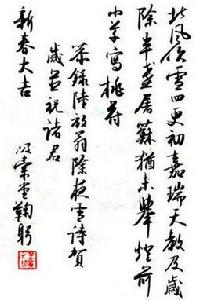 北風吹雪四更初嘉瑞天教及歲
除半盞屠蘇猶未舉燈前
小草寫桃符
錄陸放翁除夜雪詩賀
歲並祝諸君
新春大吉
鞠躬